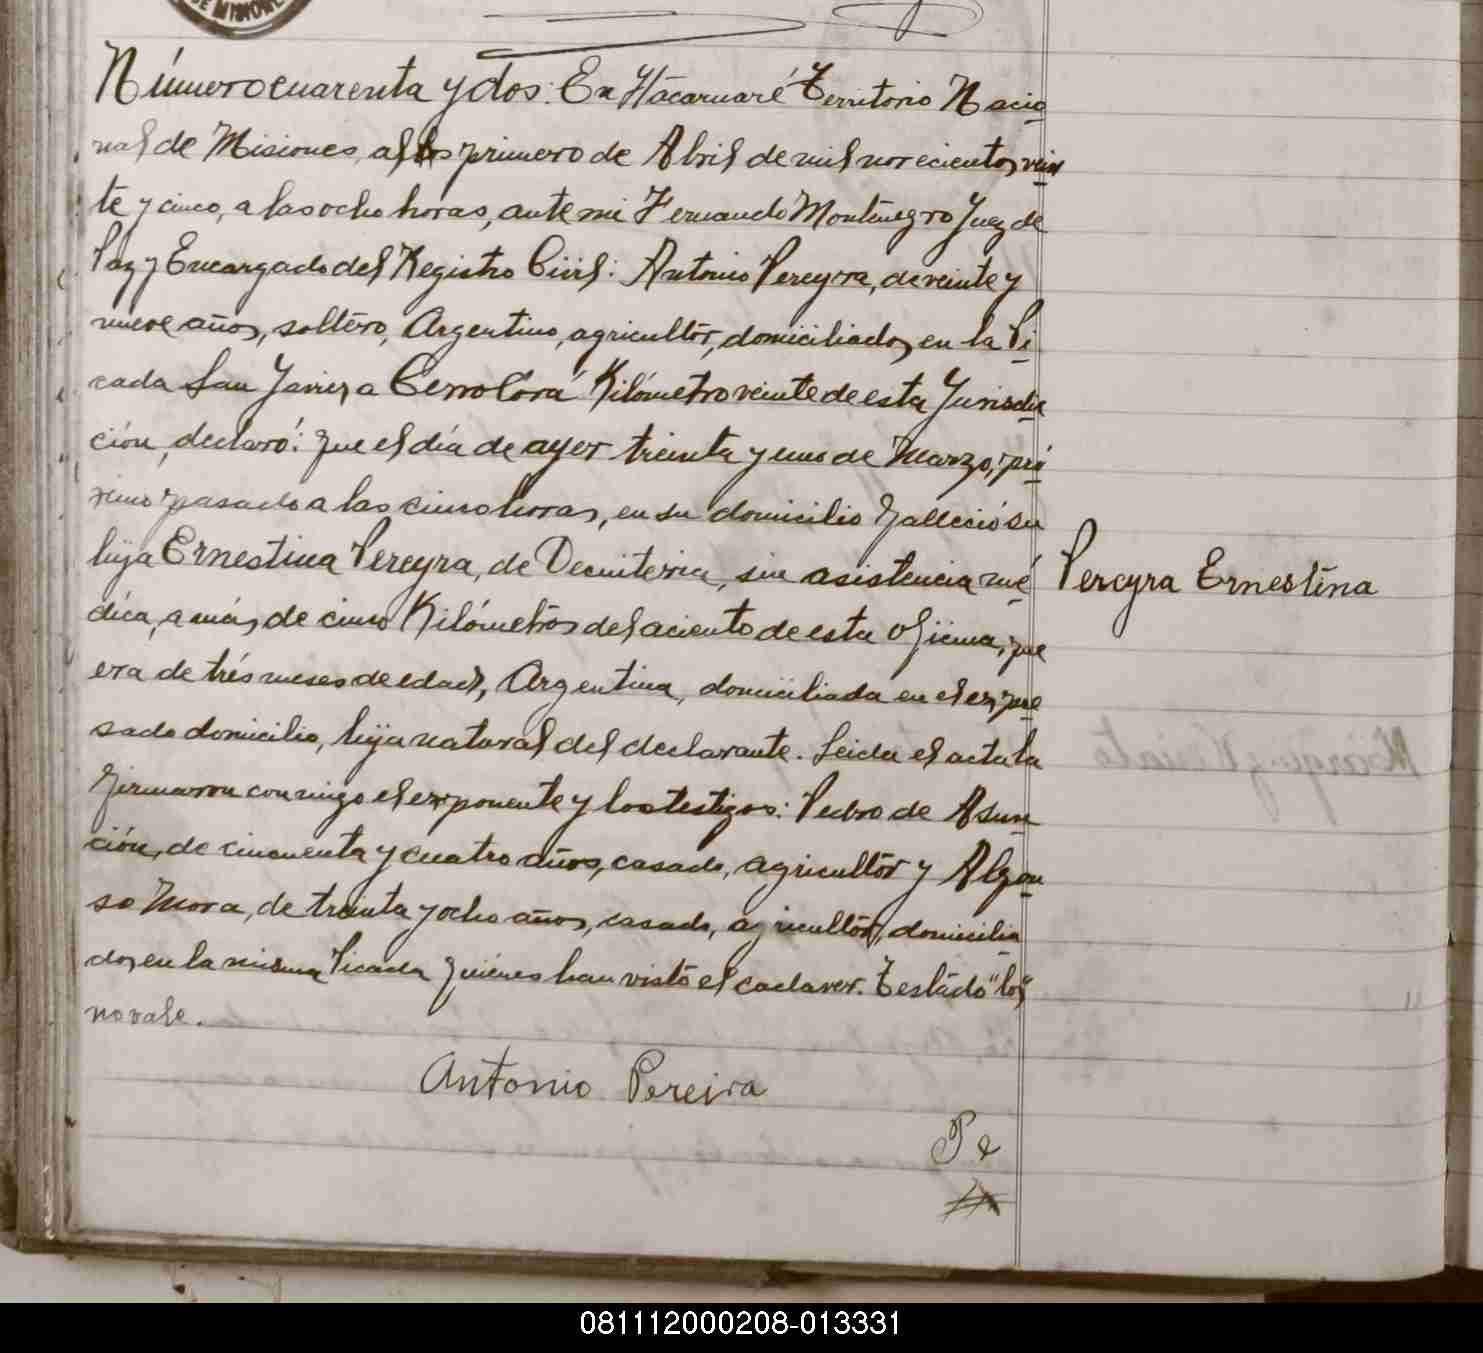 DE MISIONE
Número cuarenta y dos: En Itacaruaré Territorio Nacio
nal de Misiones, a los primero de Abril de mil novecientos vein
te y cinco, a las ocho horas, ante mi Fernando Montenegro Juez de
Paz y Encargado del Registro Civil: Antonio Pereyra, de veinte y
nueve años, soltéro, Argentino, agricultór, domiciliados en la Pi
cada San Javier a Cerro Corá Kilómetro veinte de esta Jurisdic
ción, declaró: que el día de ayer treinta y uno de Marzo, pró
ximo pasado a las cinco horas, en su domicilio falleció su
hija Ernestina Pereyra, de Decinteria, sin asistencia mé
dica, a más de cinco Kilómetros del aciento de esta oficina, que
era de trés meses de edad, Argentina, domiciliada en el expre
sado domicilio, hija natural del declarante. Leida el acta la
firmaron conmigo el exponente y los testigos: Pedro de Asun
ción, de cincuenta y cuatro años, casado, agricultór y Alfon
so Mora, de treinta y ocho años, casado, agricultór, domicilia
dos en la misma Picada quiénes han visto el cadaver. Testado "los"
no vale.
Pereyra Ernestina
Antonio Pereira
Pe
081112000208-013331